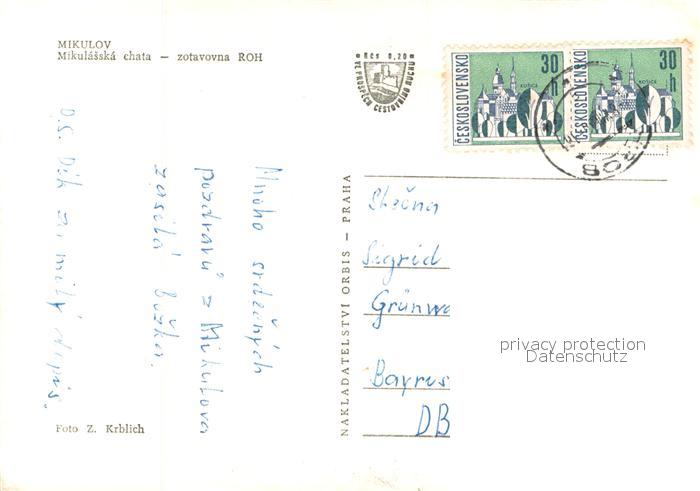 MIKULOV
Mikulášská chata — zotavovna ROH
Kčs 0,20
VE PROSPĚCH CESTOVNÍHO RUCHU
ČESKOSLOVENSKO
30
h
KOŠICE
ČESKOSLOVENSKO
30
h
KOŠICE
Mnoho srdečných
pozdravů z Mikulova
zasílá Božka.
D.S. Dík za milý dopis"
NAKLADATELSTVÍ ORBIS — PRAHA
Slečna
Sigrid
Grünwa
Bayrus
DB
privacy protection
Datenschutz
Foto Z. Krblich